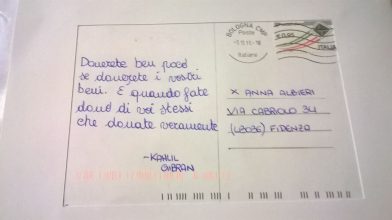 Donerete ben poco
se donerete i vostri
beni. E quando fate
dono di voi stessi
che donate veramente
-KAHLIL
GIBRAN
BOLOGNA CMP
Poste
Italiane
ITALIA
X ANNA ALBIERI
VIA CABRIOLO 34
(43036) FIDENZA